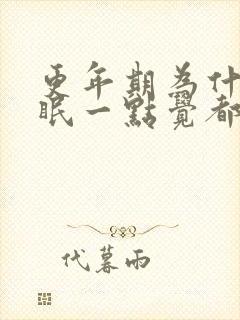 更年期為什
眠一點覺都
代暮雨